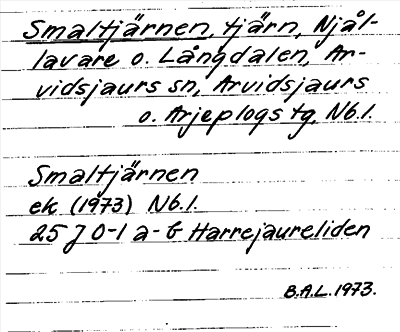 Smaltjärnen, tjärn, Njål-
lavare o. Långdalen, Ar-
vidsjaurs sn, Arvidsjaurs
o. Arjeplogs tg, Nb.l.
Smaltjärnen
ek (1973) Nb.l.
25 J 0-1 a-b Harrejaureliden
B.A.L. 1973.